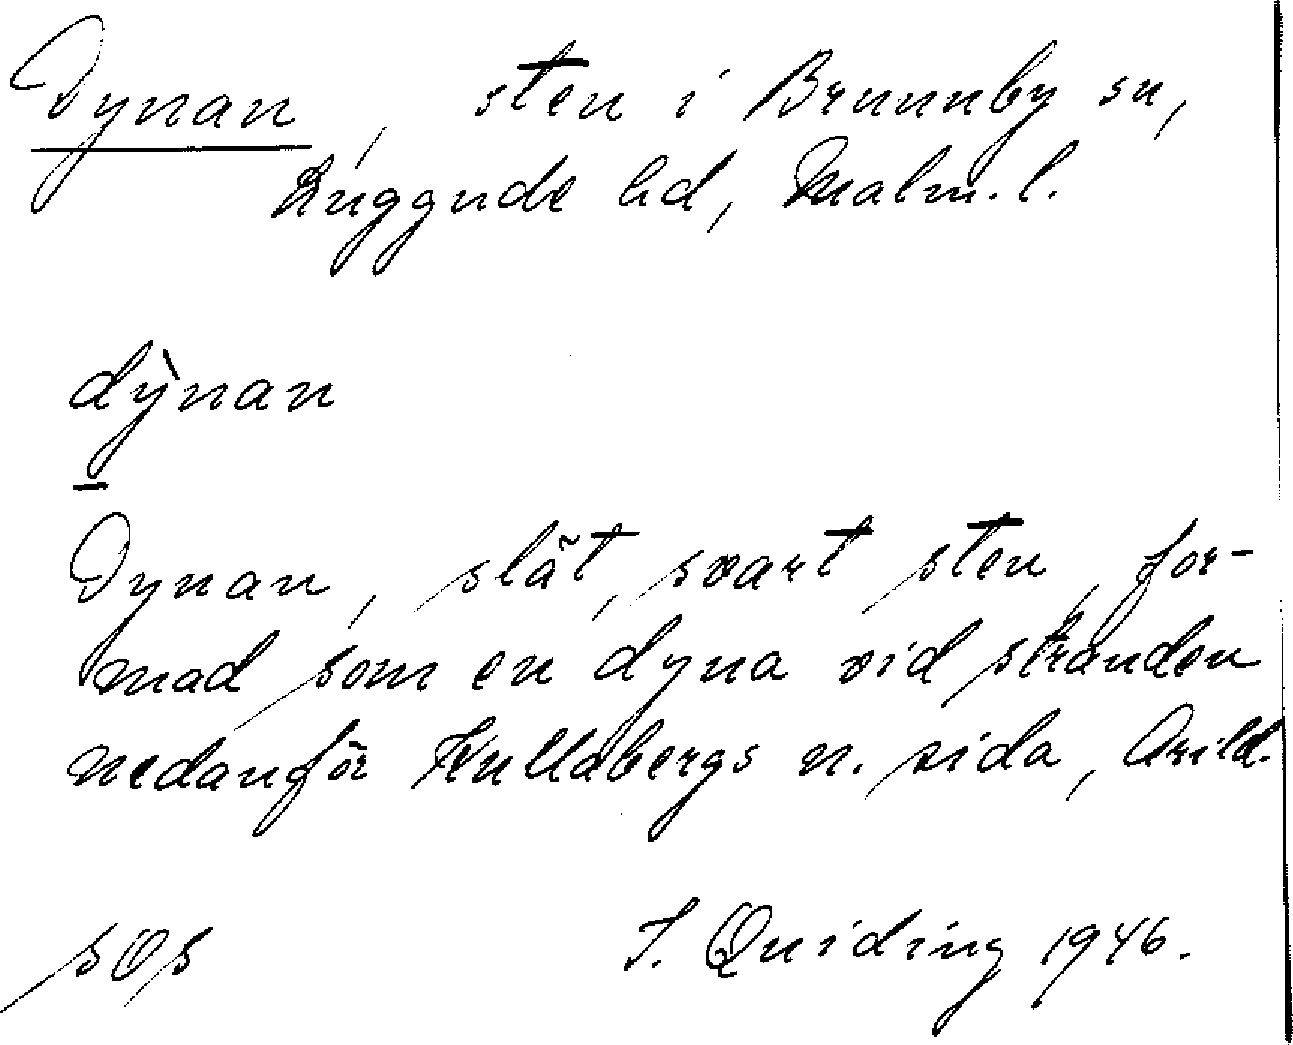 Dynan, sten i Brunnby sn,
Luggude hd, Malm. l.
dỳnan
Dynan, slät, svart sten, for-
mad som en dyna vid stranden
nedanför Kullabergs n. sida, Arild.
sOs I. Quiding 1946.